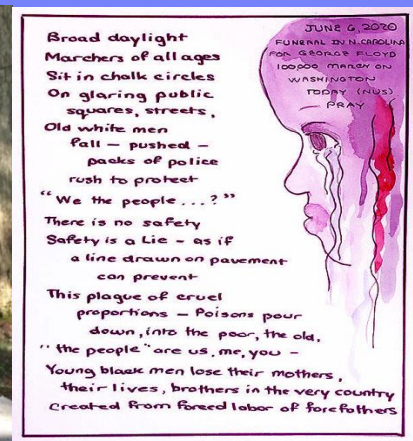 Broad daylight
Marchers of all ages
Sit in chalk circles
On glaring public
squares, streets,
Old white men
fall — pushed —
packs of police
rush to protect
"We the people...?"
There is no safety
Safety is a Lie – as if
a line drawn on pavement
can prevent
This plague of cruel
proportions – Poisons pour
down, into the poor, the old,
"the people" are us, me, you –
Young black men lose their mothers,
their lives, brothers in the very country
created from forced labor of forefathers
JUNE 6, 2020
FUNERAL IN N. CAROLINA
FOR GEORGE FLOYD
100,000 MARCH ON
WASHINGTON
TODAY (NUS)
PRAY